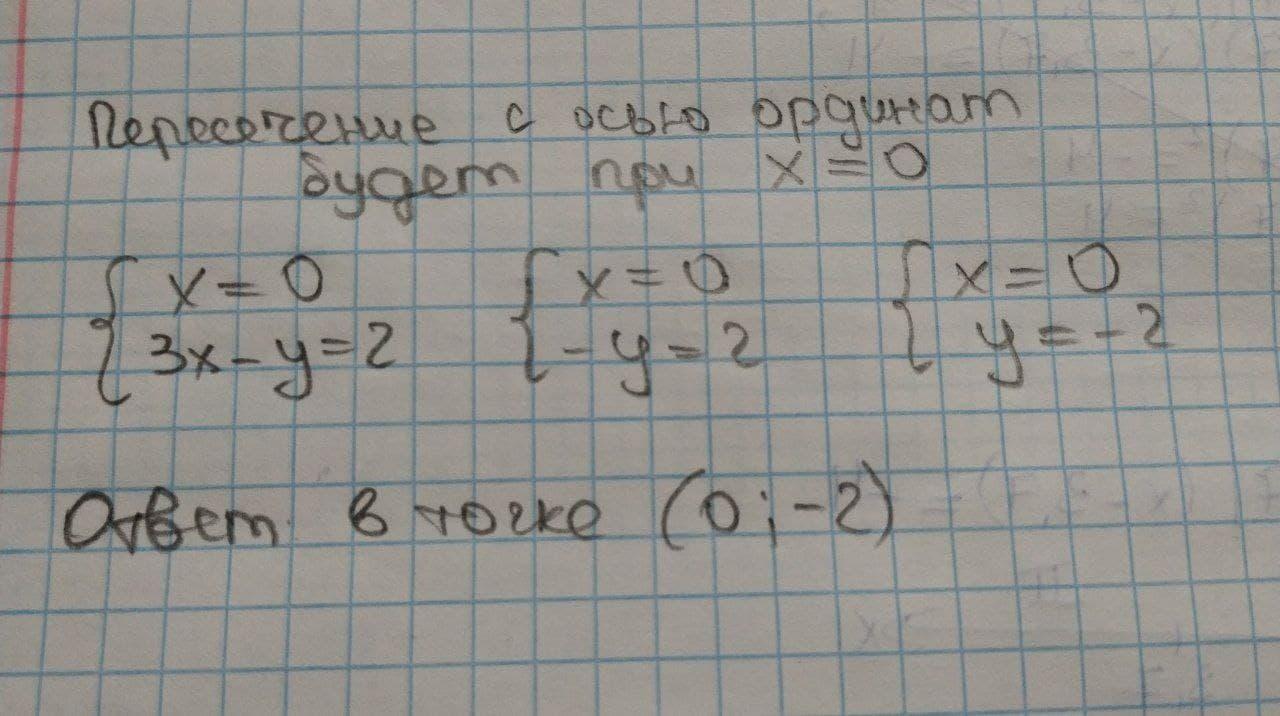 Пересечение с осью ординат
будет при x = 0
{ x = 0 { x = 0 { x = 0
{ 3x - y = 2 { - y = 2 { y = - 2
Ответ в точке (0; -2)